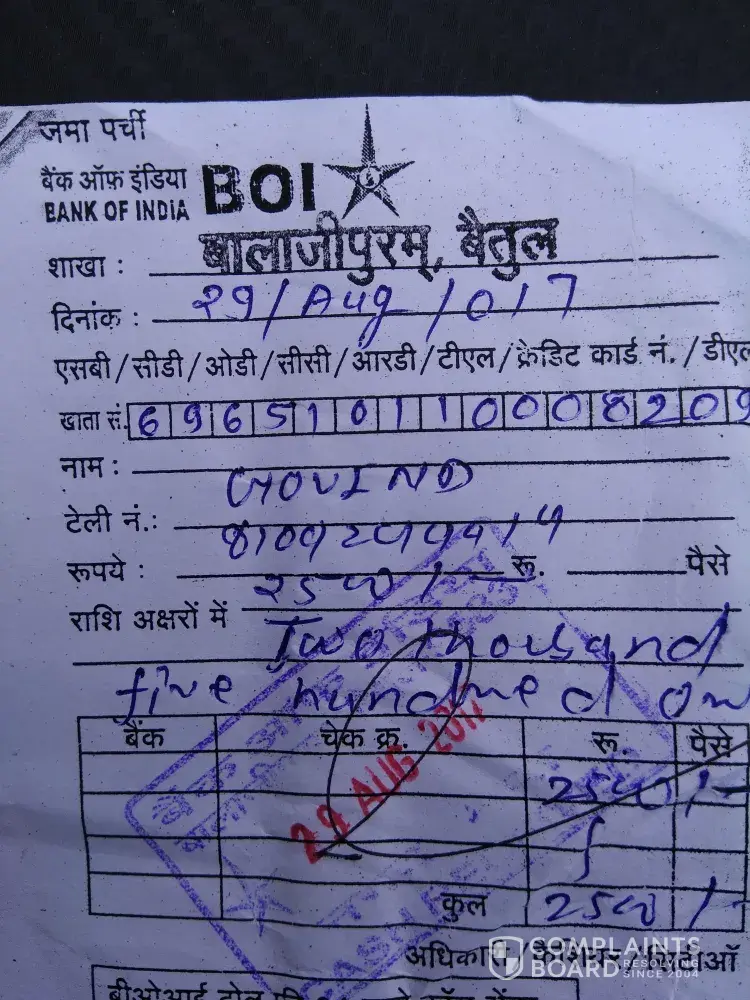 जमा पर्ची
बैंक ऑफ़ इंडिया BOI
BANK OF INDIA
शाखा : बालाजीपुरम्, बैतुल
दिनांक : 29/Aug/017
एसबी/सीडी/ओडी/सीसी/आरडी/टीएल/क्रेडिट कार्ड नं./डीएल
खाता सं. 696510110008209
नाम : GOVIND
टेली नं.:
रूपये : 2500/- रू. पैसे
राशि अक्षरों में Two thousand
five hundred on
बैंक चेक क्र. रू. पैसे
29 AUG 2017
2500/-
कुल 2500/-
अधिकारी
COMPLAINTS
BOARD RESOLVING
SINCE 2004